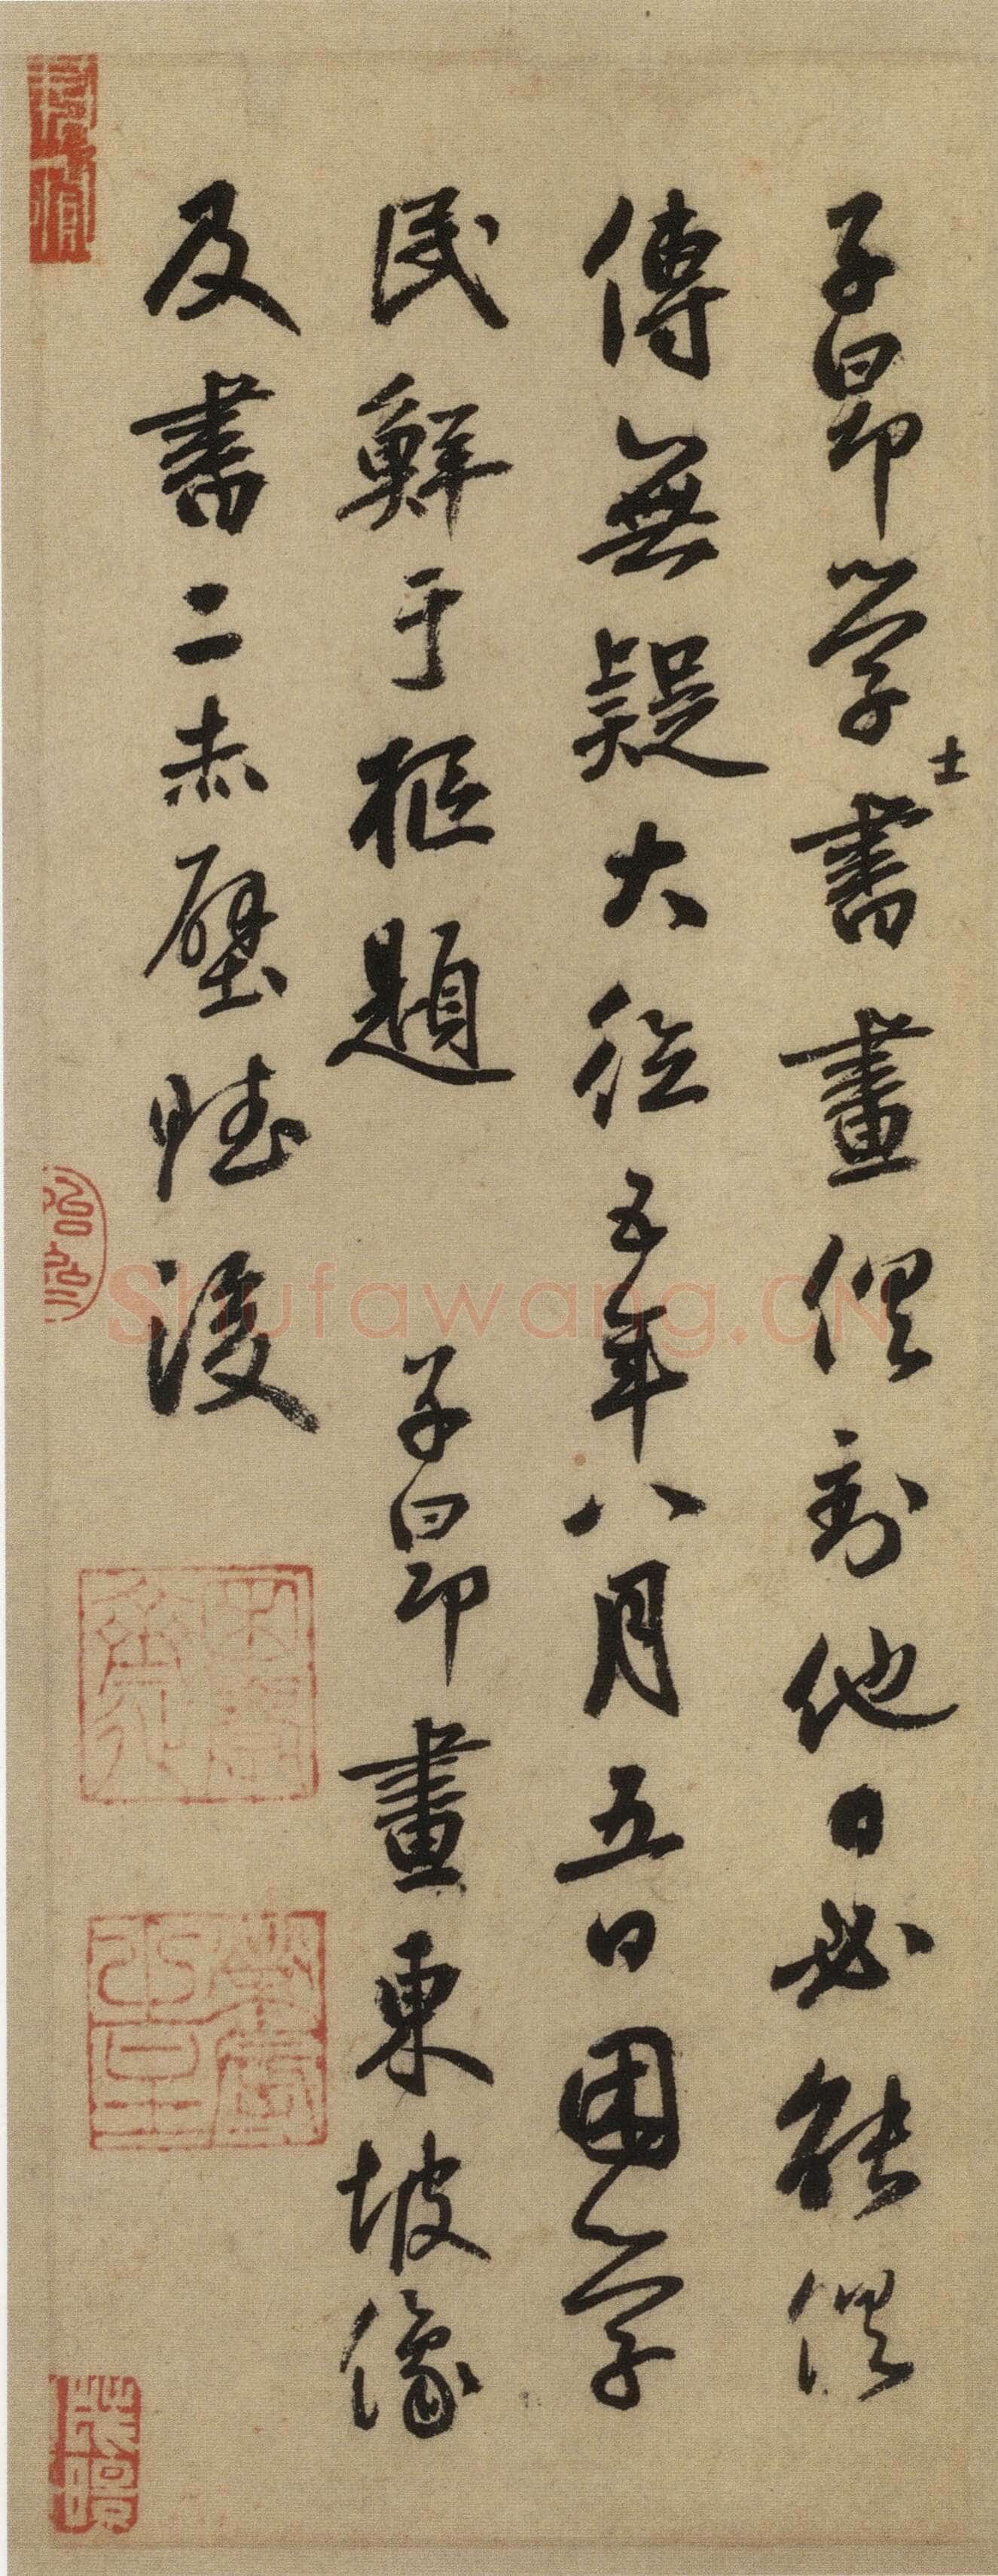 子昂学士書畫俱到他日必能俱
傳無疑大德五年八月五日困学
民鮮于樞題 子昂畫東坡像
及書二赤壁賦後
Shufawang.CN